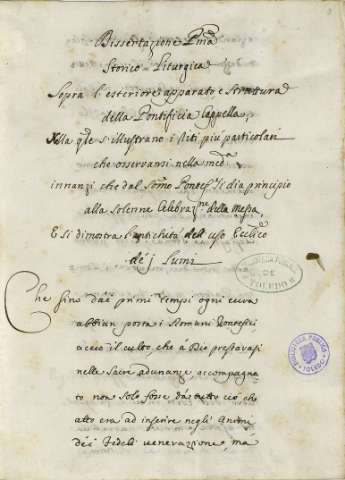 Dissertazione Pma
Storico-Liturgica
Sopra l'esteriore apparato e Struttura
della Pontificia Cappella,
Nella qle s'illustrano i Riti più particolari
che osservansi nella medma
innanzi che dal Somo Pontefe Si dia principio
alla Solenne Celebrazne della Messa,
E Si dimostra l'antichità dell'uso Ecclico
de' i Lumi
Che fino dai primi Tempi ogni cura
abbian posta i Romani Pontefici,
acciò il culto, che à Dio prestavasi
nelle Sacre adunanze, accompagna-
to non Solo fosse da tutto ciò che
atto era ad inserire negli Animi
dei Fedeli venerazione, ma
BIBLIOTECA PUBLICA
DE
TOLEDO
BIBLIOTECA PUBLICA
TOLEDO